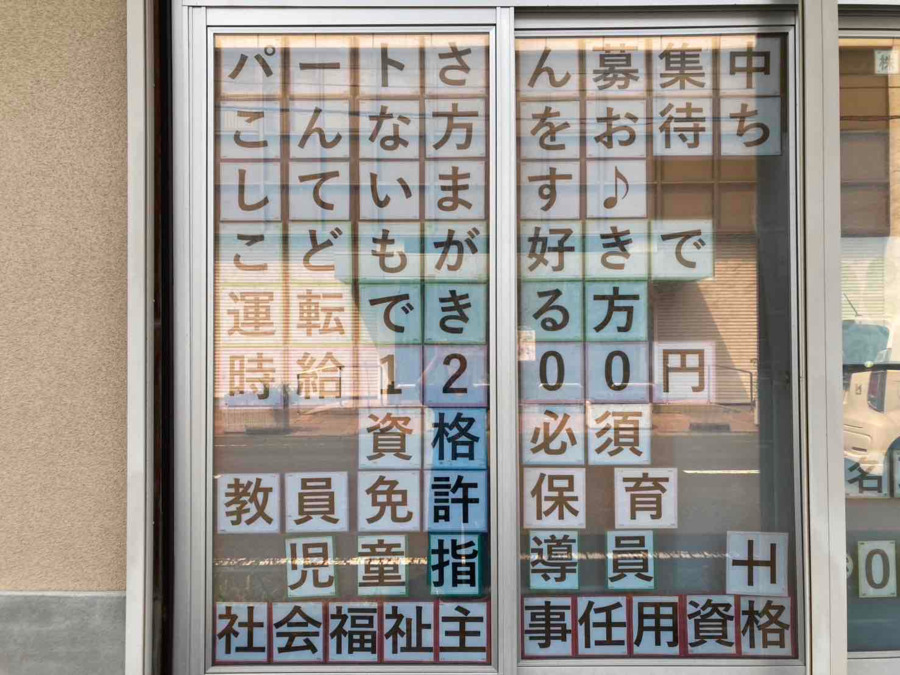 パートさん募集中
こんな方をお待ち
しています♪
こどもが好きで
運転できる方
時給1200円
資格必須
教員免許 保育士
児童指導員
社会福祉主事任用資格
株
名
0